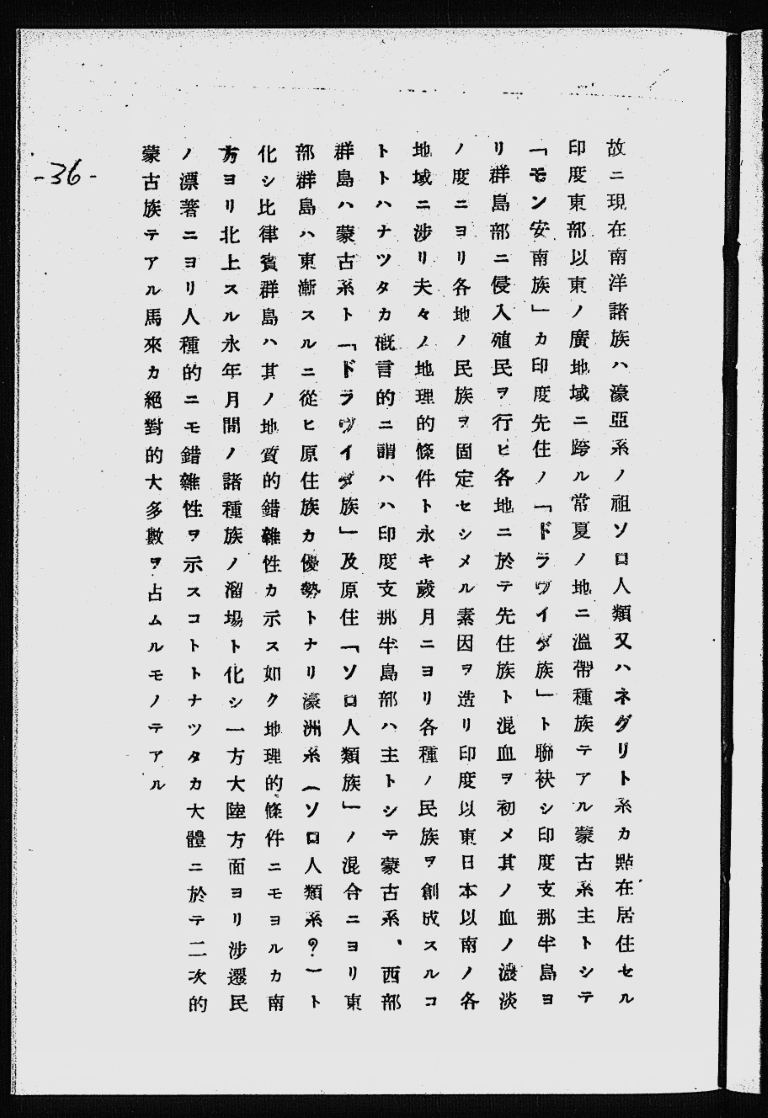 故ニ現在南洋諸族ハ濠亞系ノ祖ソロ人類又ハネグリト系カ點在居住セル
印度東部以東ノ廣地域ニ跨ル常夏ノ地ニ溫帶種族テアル蒙古系主トシテ
「モン安南族」カ印度先住ノ「ドラヴイダ族」ト聯袂シ印度支那半島ヨ
リ群島部ニ侵入殖民ヲ行ヒ各地ニ於テ先住族ト混血ヲ初メ其ノ血ノ濃淡
ノ度ニヨリ各地ノ民族ヲ固定セシメル素因ヲ造リ印度以東日本以南ノ各
地域ニ涉リ夫々ノ地理的條件ト永キ歲月ニヨリ各種ノ民族ヲ創成スルコ
トトハナツタカ槪言的ニ謂ハハ印度支那半島部ハ主トシテ蒙古系、西部
群島ハ蒙古系ト「ドラヴイダ族」及原住「ソロ人類族」ノ混合ニヨリ東
部群島ハ東漸スルニ從ヒ原住族カ優勢トナリ濠洲系(ソロ人類系?)ト
化シ比律賓群島ハ其ノ地質的錯雜性カ示ス如ク地理的條件ニモヨルカ南
方ヨリ北上スル永年月間ノ諸種族ノ溜場ト化シ一方大陸方面ヨリ涉遷民
ノ漂著ニヨリ人種的ニモ錯雜性ヲ示スコトトナツタカ大體ニ於テ二次的
蒙古族テアル馬來カ絕對的大多數ヲ占ムルモノテアル
-36-